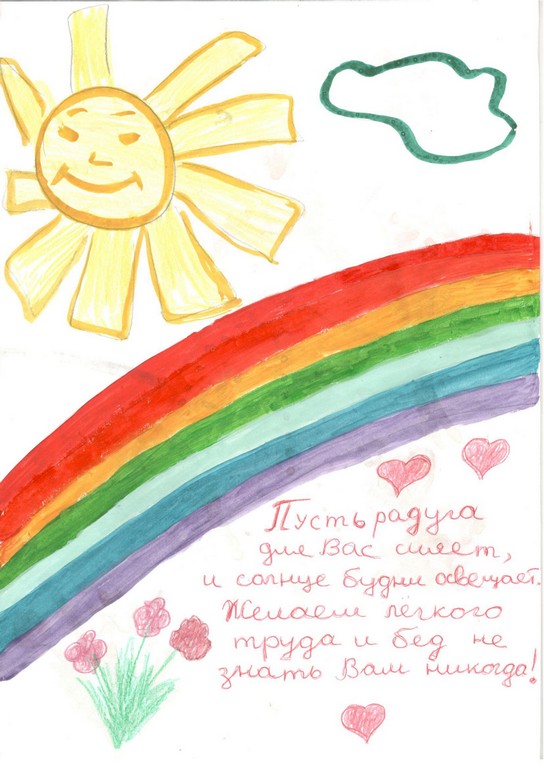 Пусть радуга
для Вас сияет,
и солнце будни освещает.
Желаем лёгкого
труда и бед не
знать Вам никогда!